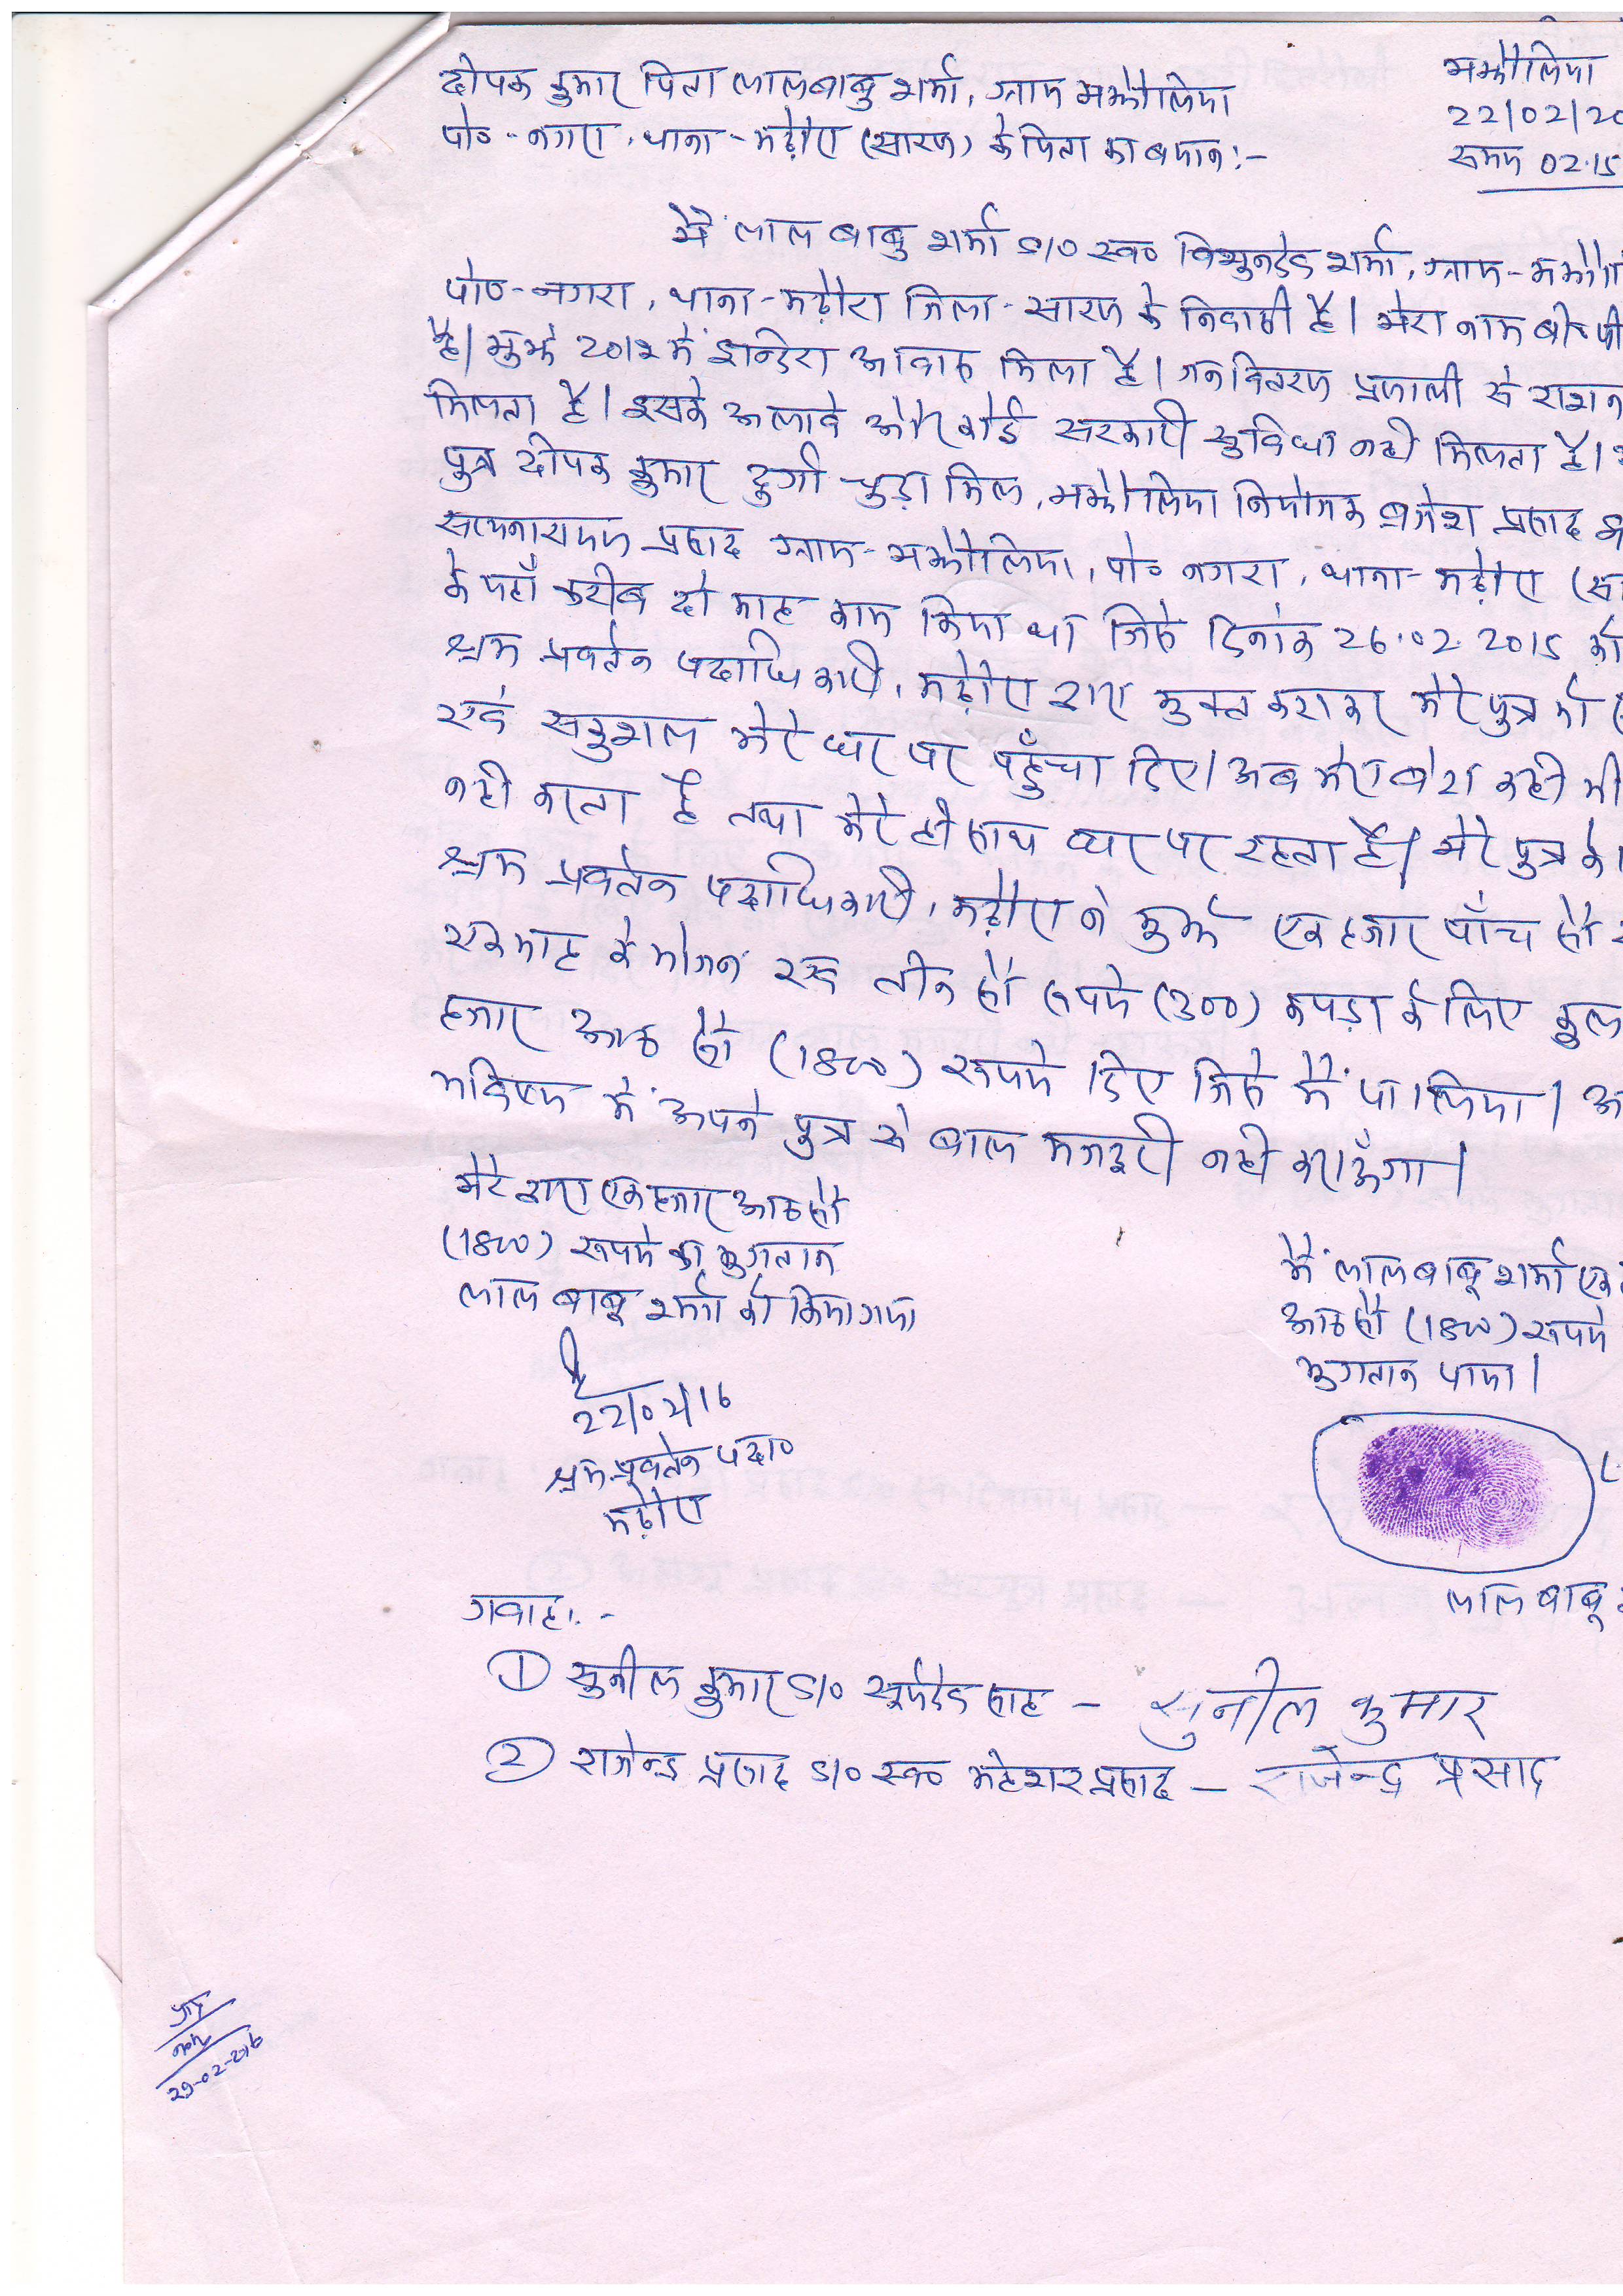 दीपक कुमार पिता लालबाबु शर्मा, ग्राम मझौलिया
पो०-नगरा, थाना-मढ़ौरा (सारण) के पिता का बयान:-
मझौलिया
22/02/20
समय 02.15
मैं लाल बाबु शर्मा S/O स्व० विशुनदेव शर्मा, ग्राम-
पो०-नगरा, थाना-मढ़ौरा जिला-सारण के निवासी हैं। मेरा नाम बी०पी
है। मुझे 2012 में इन्दिरा आवास मिला है। जन वितरण प्रणाली से राशन
मिलता है। इसके अलावे और कोई सरकारी सुविधा नही मिलता है।
पुत्र दीपक कुमार दुर्गा चुड़ा मिल, मझौलिया नियोजक ब्रजेश प्रसाद
सत्यनारायण प्रसाद ग्राम-मझौलिया, पो० नगरा, थाना-मढ़ौरा
के यहाँ करीब दो माह काम किया था जिसे दिनांक 26.02.2015 को
श्रम प्रवर्तन पदाधिकारी, मढ़ौरा द्वारा मुक्त कराकर मेरे पुत्र को
एवं सकुशल मेरे घर पर पहुँचा दिए। अब मेरा बेटा कही भी
नही करता है तथा मेरे ही साथ घर पर रहता है। मेरे पुत्र के
श्रम प्रवर्तन पदाधिकारी, मढ़ौरा ने मुझे एक हजार पाँच सौ
एक माह के भोजन एवं तीन सौ रूपये (300) कपड़ा के लिए कुल
हजार आठ सौ (1800) रूपये दिए जिसे मैं पा लिया।
भविष्य में अपने पुत्र से बाल मजदूरी नही कराऊँगा।
मेरे द्वारा एक हजार आठ सौ
(1800) रूपये का भुगतान
लाल बाबु शर्मा को किया गया
22/02/16
श्रम प्रवर्तन पदा०
मढ़ौरा
मैं लाल बाबु शर्मा एक
आठ सौ (1800) रूपये
भुगतान पाया।
लाल बाबू
गवाह:-
① सुनील कुमार S/O सूर्यदेव साह - सुनील कुमार
② राजेन्द्र प्रसाद S/O स्व० महेशर प्रसाद - राजेन्द्र प्रसाद
29-02-2016